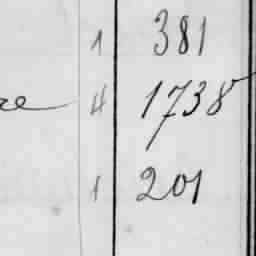 1 381
re 4 1738
1 201